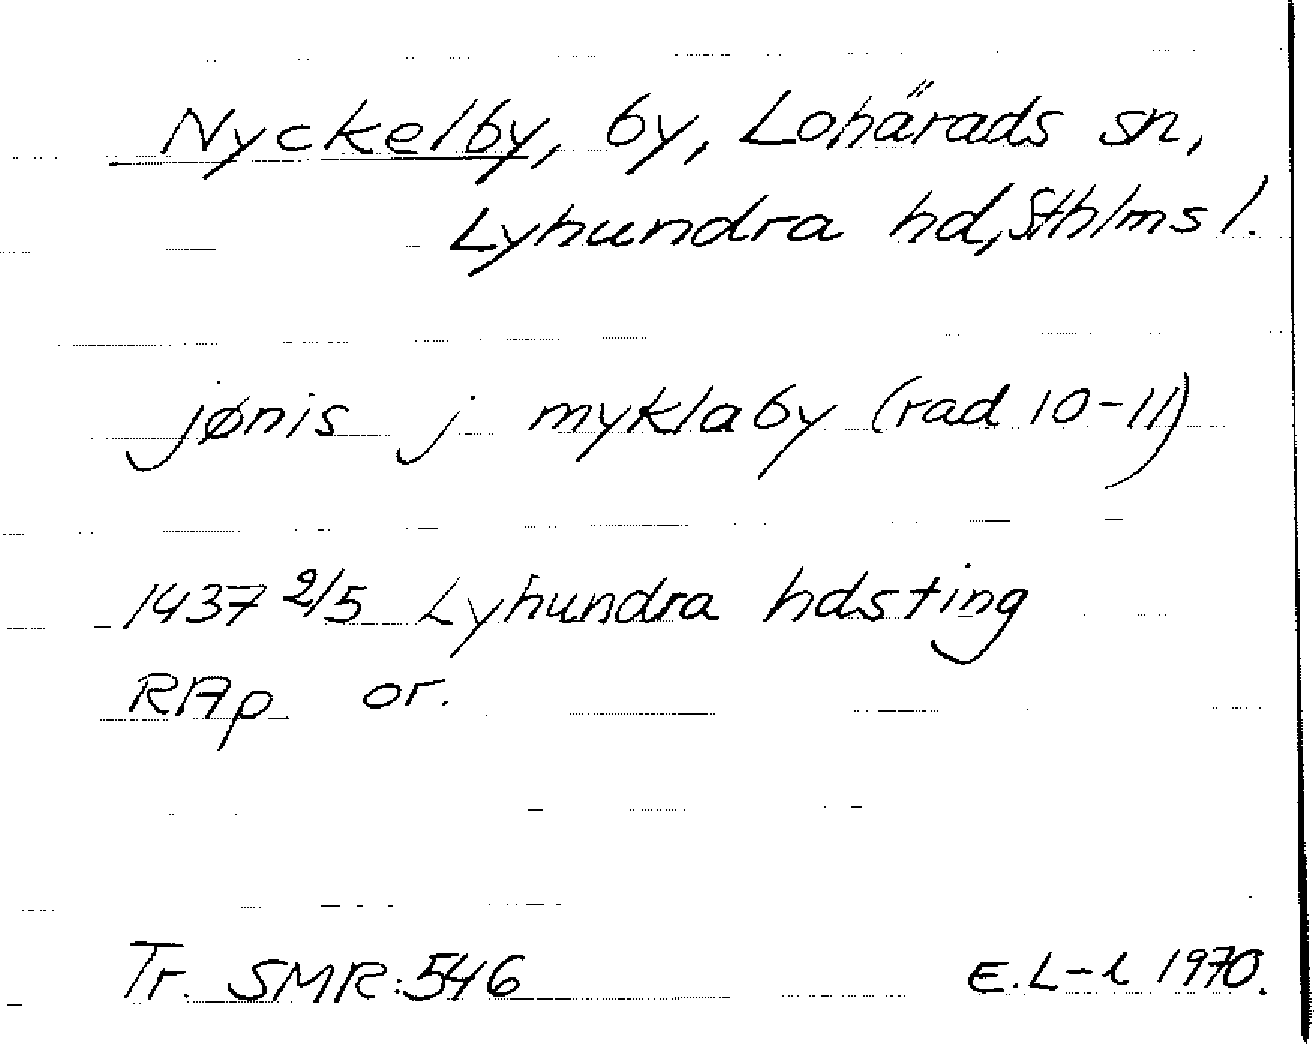 Nyckelby, by, Lohärads sn,
Lyhundra hd, Sthlms l.
jønis j myklaby (rad 10-11)
1437 2/5 Lyhundra hdsting
RAp or.
Tr. SMR:546 E.L-l 1970.